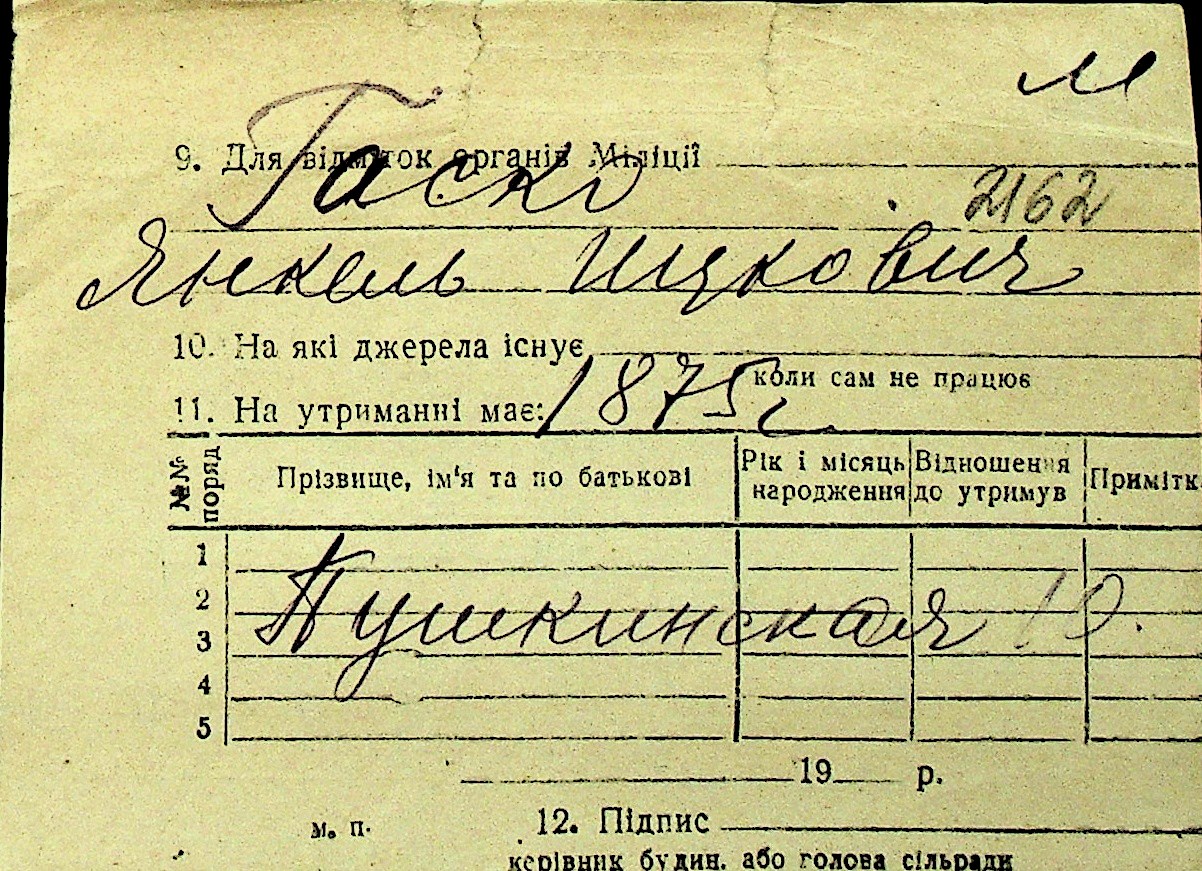 м
9. Для відміток органів Міліції
Гаско
2162
Янкель Ицкович
10. На які джерела існує
коли сам не працює
1875 г.
11. На утриманні має:
№№ поряд
Прізвище, ім'я та по батькові
Рік і місяць народження
Відношення до утримув
Примітк
1
2
Пушкинская 10.
3
4
5
19 р.
м. п.
12. Підпис
керівник будин. або голова сільради